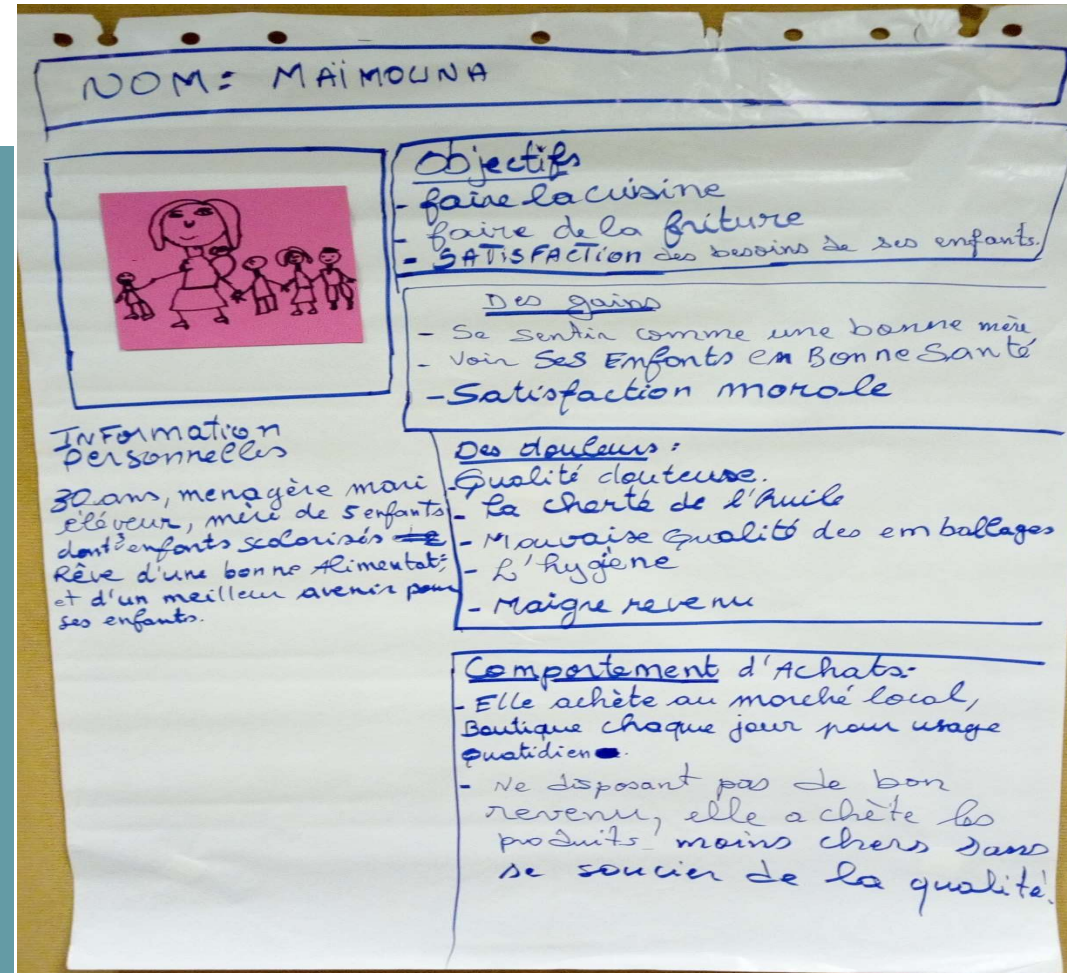 NOM: MAÏMOUNA
Objectifs
- faire la cuisine
- faire de la friture
- SATISFACTION des besoins de ses enfants.
Des gains
- Se sentir comme une bonne mère
- Voir Ses Enfants en Bonne Santé
- Satisfaction morale
INFormation
personnelles
30 ans, menagère mari
éléveur, mère de 5 enfants
dont 3 enfants scolarisés
Rêve d'une bonne Alimentat°
et d'un meilleur avenir pour
ses enfants.
Des douleurs :
- Qualité douteuse.
- La cherté de l'huile
- Mauvaise Qualité des emballages
- L'hygène
- Maigre revenu
Comportement d'Achats.
- Elle achète au marché local,
Boutique chaque jour pour usage
quatidien.
- Ne disposant pas de bon
revenu, elle achète les
produits moins chers sans
se soucier de la qualité.